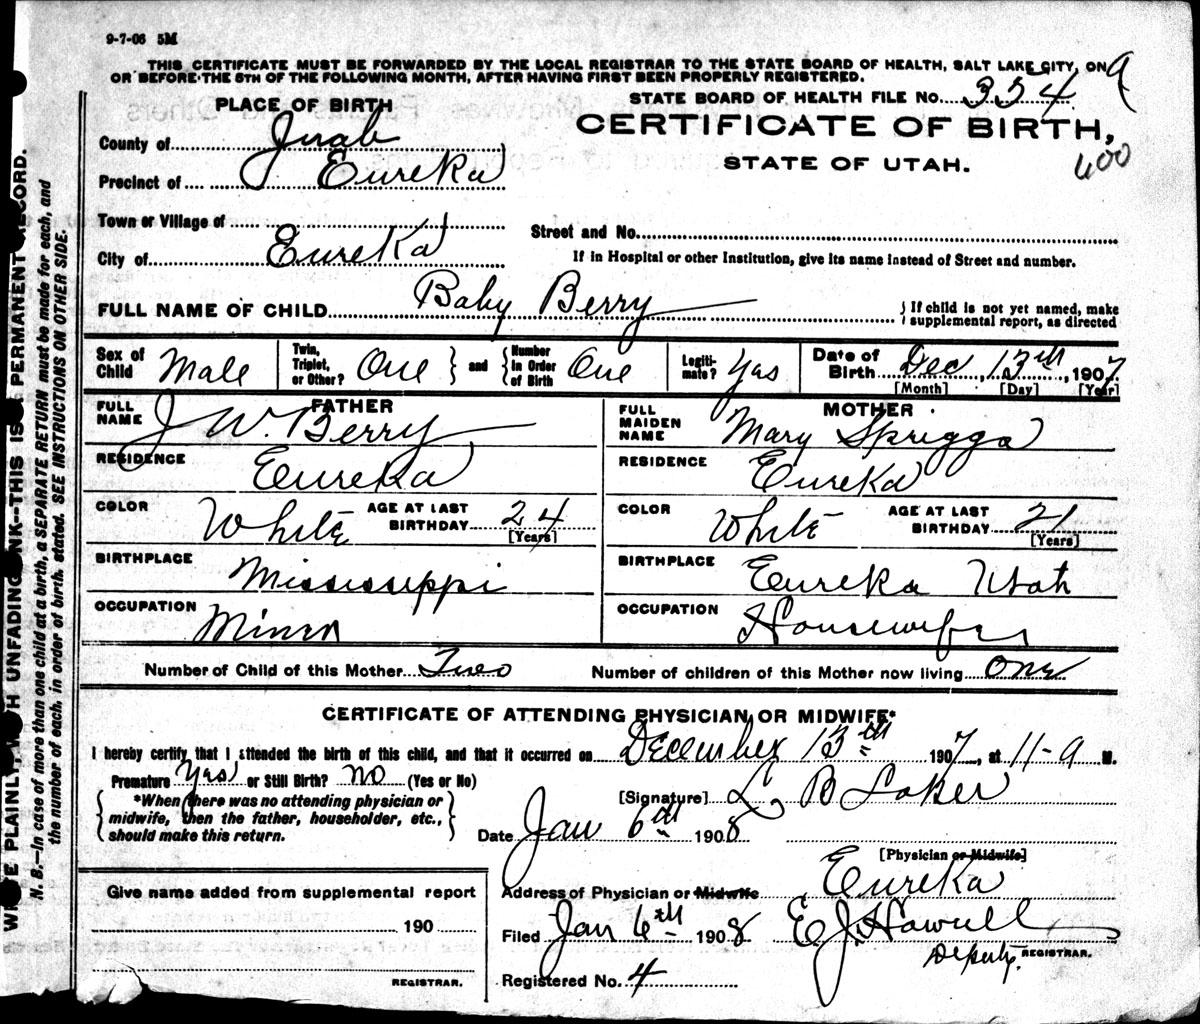 9-7-06 5M
THIS CERTIFICATE MUST BE FORWARDED BY THE LOCAL REGISTRAR TO THE STATE BOARD OF HEALTH, SALT LAKE CITY, ON
OR BEFORE THE 5TH OF THE FOLLOWING MONTH, AFTER HAVING FIRST BEEN PROPERLY REGISTERED.
9
STATE BOARD OF HEALTH FILE No. 354
CERTIFICATE OF BIRTH,
STATE OF UTAH.
600
PLACE OF BIRTH
County of Juab
Precinct of Eureka
Town or Village of
City of Eureka
Street and No.
If in Hospital or other Institution, give its name instead of Street and number.
FULL NAME OF CHILD Baby Berry
If child is not yet named, make
supplemental report, as directed
Sex of Child Male
Twin, Triplet, or Other? One and Number In Order of Birth One
Legitimate? Yas
Date of Birth Dec 13th, 1907
[Month] [Day] [Year]
FATHER
FULL NAME J W. Berry
RESIDENCE Eureka
COLOR White AGE AT LAST BIRTHDAY 24
[Years]
BIRTHPLACE Mississippi
OCCUPATION Miner
MOTHER
FULL MAIDEN NAME Mary Spriggs
RESIDENCE Eureka
COLOR White AGE AT LAST BIRTHDAY 21
[Years]
BIRTHPLACE Eureka Utah
OCCUPATION Housewife
Number of Child of this Mother Two Number of children of this Mother now living One
CERTIFICATE OF ATTENDING PHYSICIAN OR MIDWIFE*
I hereby certify that I attended the birth of this child, and that it occurred on December 13th 1907, at 11-a M.
Premature Yas or Still Birth? No (Yes or No)
*When there was no attending physician or
midwife, then the father, householder, etc.,
should make this return.
[Signature] L B Laker
Date Jan 6th 1908
[Physician or Midwife]
Address of Physician or Midwife Eureka
Filed Jan 6th 1908 E J Howell
Deputy REGISTRAR.
Registered No. 4
Give name added from supplemental report
190
REGISTRAR.
PLAINLY, UNFADING THIS IS PERMANENT RECORD.
N. B.—In case of more than one child at a birth, a SEPARATE RETURN must be made for each, and
the number of each, in order of birth, stated. SEE INSTRUCTIONS ON OTHER SIDE.